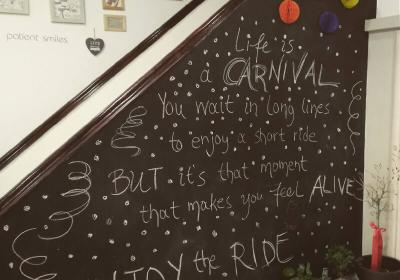 patient smiles
Life is
a CARNIVAL
You wait in long lines
to enjoy a short ride
BUT it's that moment
that makes you feel ALIVE
the RIDE